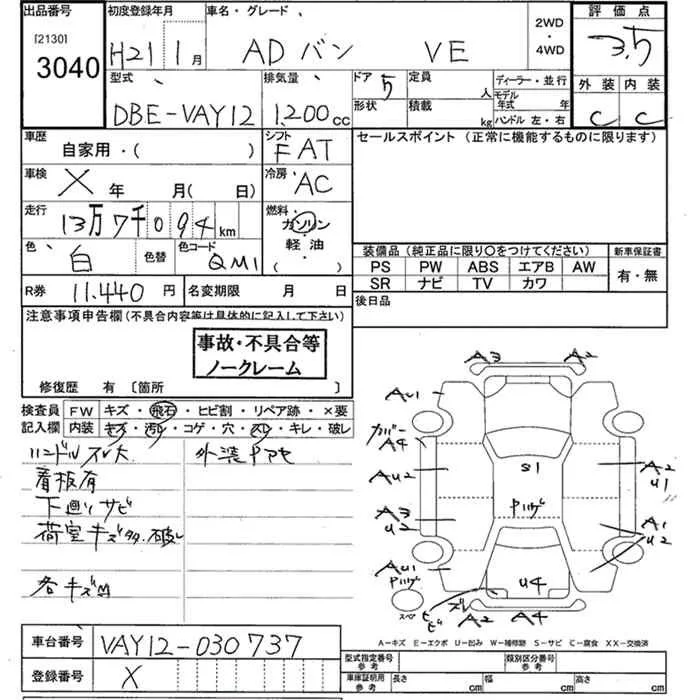 出品番号 初度登録年月 車名・グレード 2WD・4WD 評価点
[2130]
3040
H21 1月 ADバン VE 3.5
型式 排気量 ドア 定員 人 ディーラー・並行 外装 内装
DBE-VAY12 1,200cc 5 形状 積載 kg モデル年式 年 ハンドル 左・右 C C
車歴 シフト セールスポイント (正常に機能するものに限ります)
自家用・( ) FAT
車検 冷房
X 年 月( 日) AC
走行 燃料
13万7千094km ガソリン・軽油・( )
色 白 色替 色コード QM1
装備品(純正品に限り○をつけてください) 新車保証書
PS PW ABS エアB AW 有・無
SR ナビ TV カワ
R券 11,440円 名変期限 月 日 後日品
注意事項申告欄(不具合内容等は具体的に記入して下さい)
事故・不具合等
ノークレーム
修復歴 有〔箇所 〕
検査員 FW キズ・飛石・ヒビ割・リペア跡・×要
記入欄 内装 キズ・汚れ・コゲ・穴・スレ・キレ・破レ
ハンドルスレ大 外装
看板有
下回リサビ
荷室キズ 破レ
各キズ
A3 A2
AU1
カバー
A4
AU2
A3
U2
AU1
S1
A2
U1
A1
U2
U4
スペ
A2 A4
A-キズ E-エクボ U-凹み W-補修跡 S-サビ C-腐食 XX-交換済
車台番号 VAY12-030737
登録番号 X
型式指定番号 参考 類別区分番号 参考
車庫証明用 参考 長さ cm 幅 cm 高さ cm